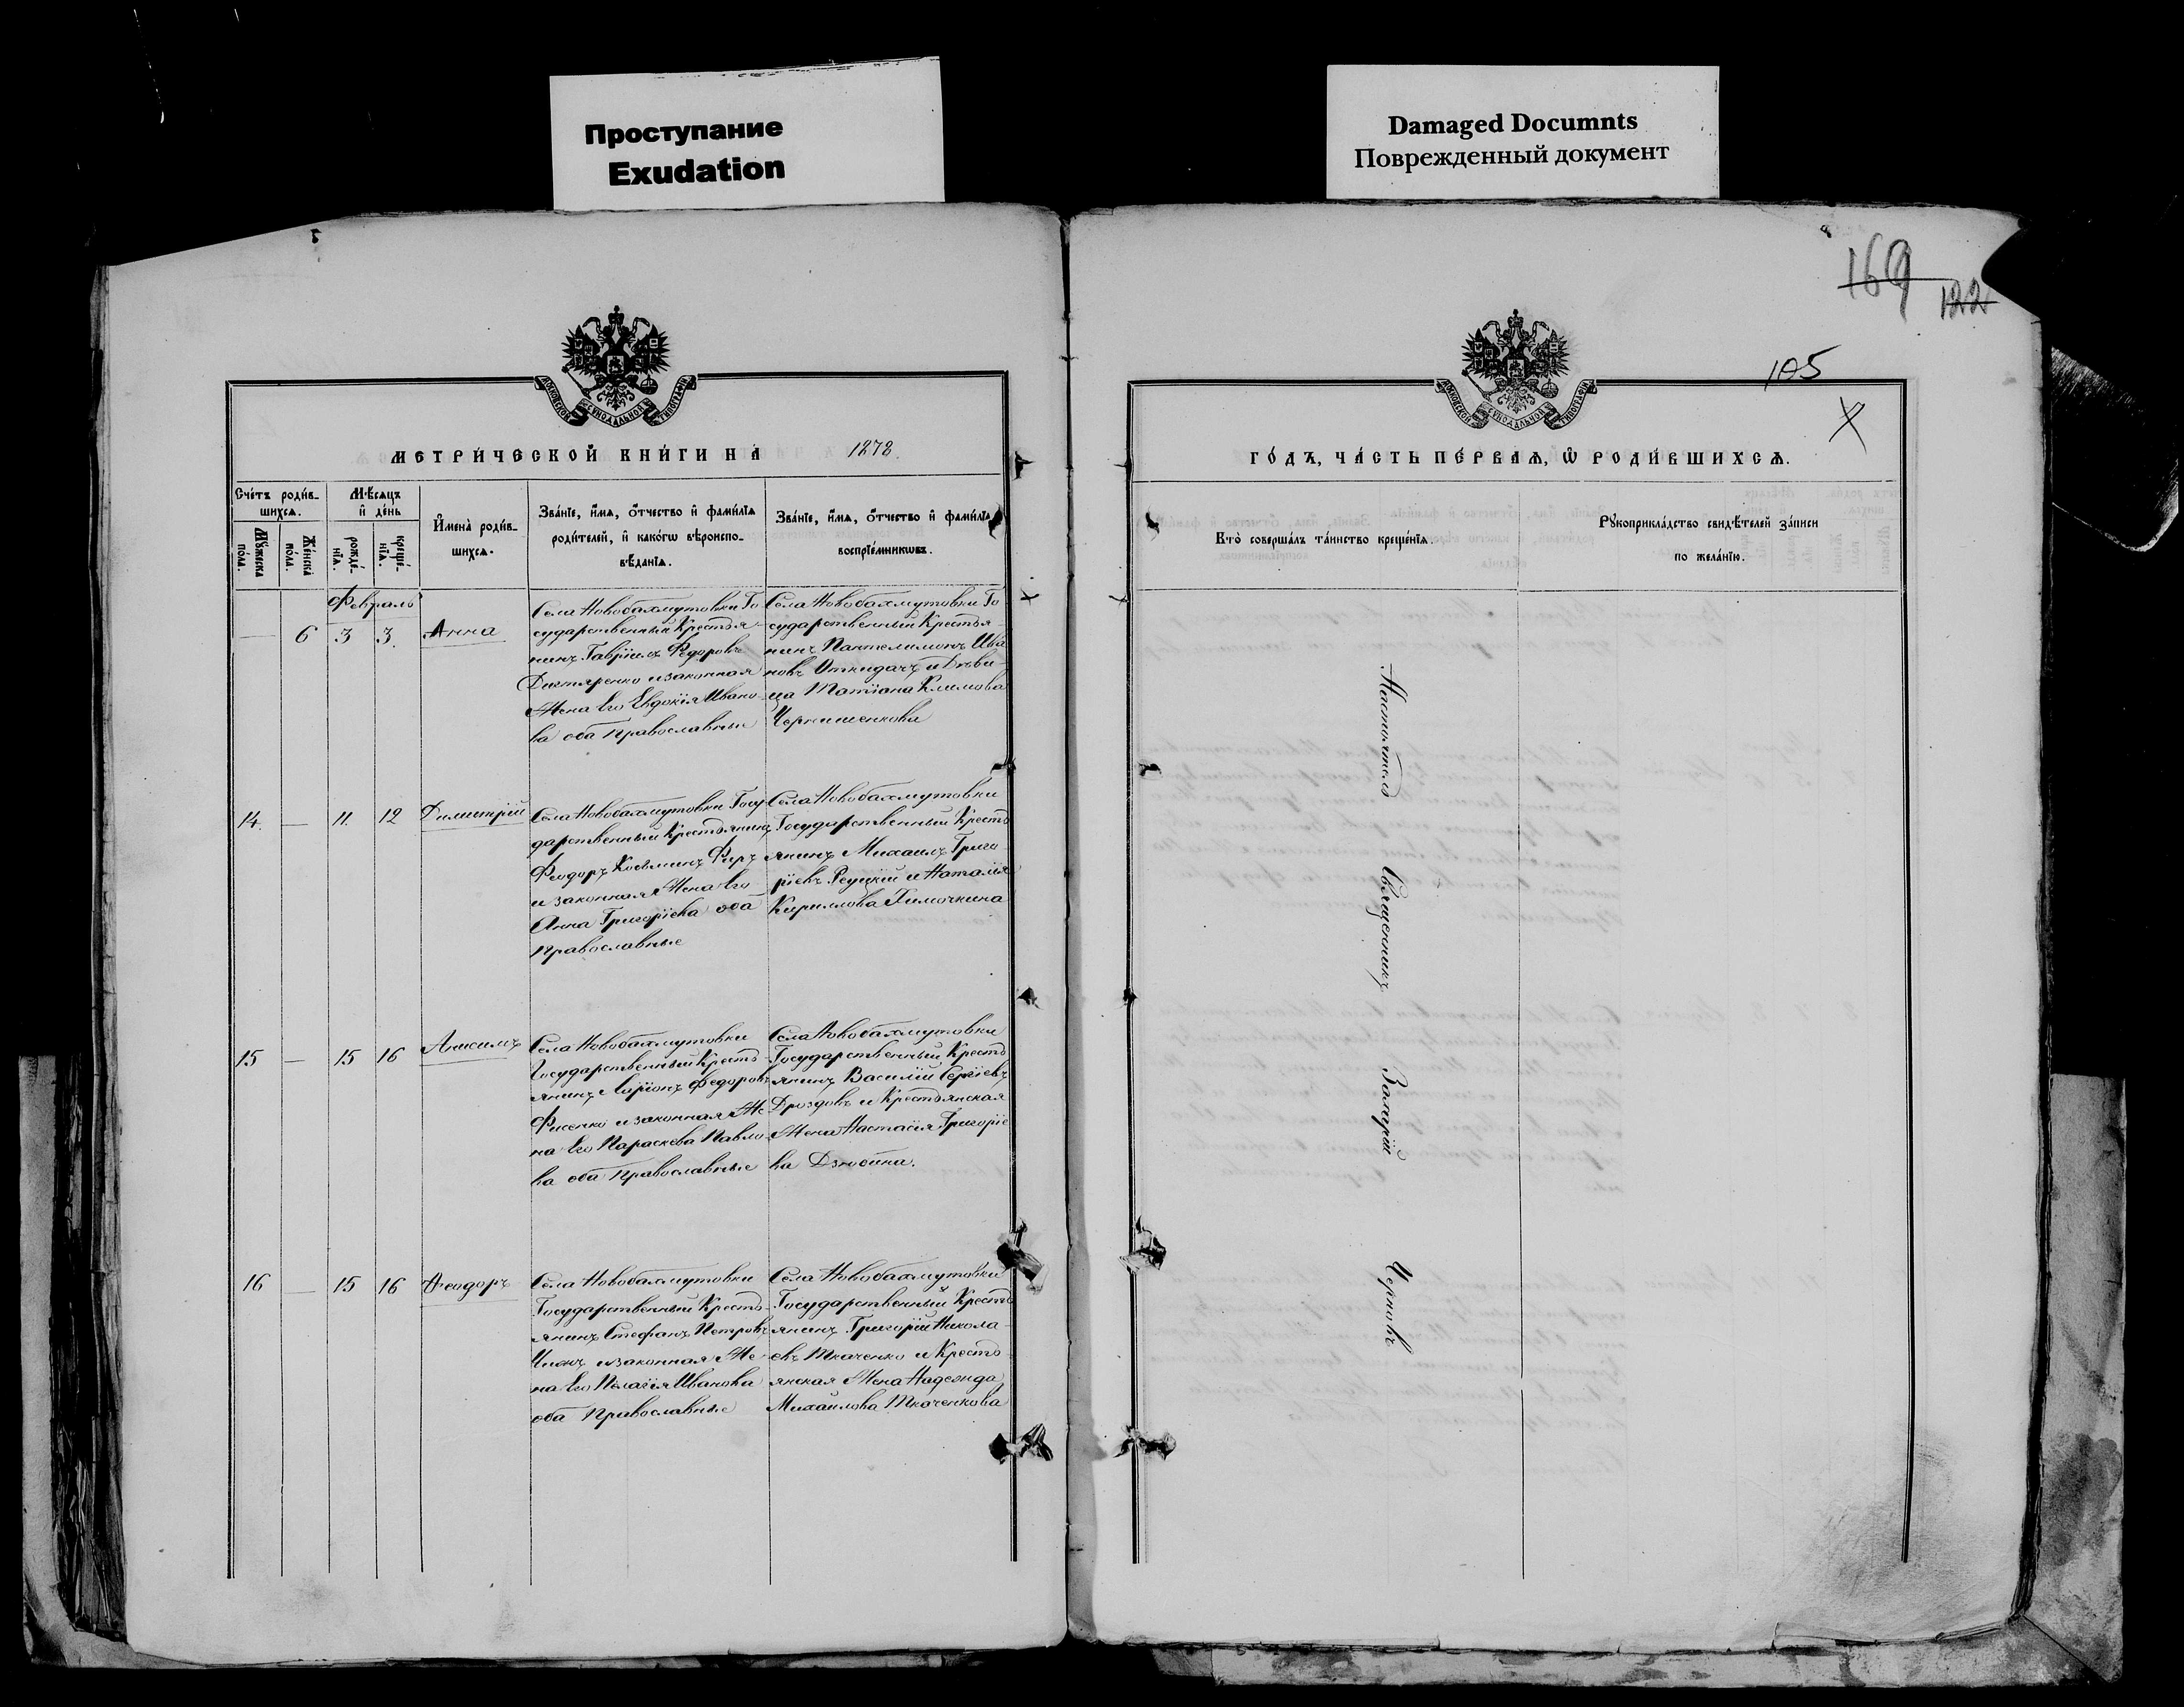 Проступание
Exudation
Damaged Documnts
Поврежденный документ
169
122
105
МОСКОВСКОЙ СѴНОДАЛЬНОЙ ТИПОГРАФІИ
МЕТРИ́ЧЕСКОЙ КНИ́ГИ НА 1878.
Сче́тъ роди́в-
шихсѧ.
Мꙋ́жеска по́ла.
Же́нска по́ла.
Мѣ́сѧцъ
и҆ де́нь
рожде́-
нїѧ.
креще́-
нїѧ.
И҆мена̀ роди́в-
шихсѧ.
Зва́нїе, и҆́мѧ, ѻ҆́тчество и҆ фами́лїѧ
роди́телей, и҆ како́гѡ вѣроиспо-
вѣ́данїѧ.
Зва́нїе, и҆́мѧ, ѻ҆́тчество и҆ фами́лїѧ
воспрїе́мникѡвъ.
Февраль
— 6 3 3. Анна
Села Новобахмутовки Го
сударственный Крестья-
нинъ Гавріилъ Федоровъ
Дегтяренко и законная
Жена Его Евдокія Ивано-
ва оба Православные
Села Новобахмутовки Го
сударственный Крестья-
нинъ Пантелимонъ Ива
новъ Откидачъ и Дѣви-
ца Татіана Климова
Чернишенкова
14. — 11. 12 Димитрій
Села Новобахмутовки Госу-
дарственный Крестьянинъ
Феодоръ Косьминъ
и законная Жена Его
Анна Григоріева оба
Православные
Села Новобахмутовки
Государственный Кресть
янинъ Михаилъ Григо
ріевъ Реуцкій и Наталія
Кирилова Химочкина
15 — 15 16 Анисимъ
Села Новобахмутовки
Государственный Кресть-
янинъ Ларіонъ Федоровъ
Фисенко и законная Же-
на Его Параскева Павло-
ва оба Православные
Села Новобахмутовки
Государственный Кресть
янинъ Василій Сергіевъ
Дроздовъ и Крестьянская
Жена Настасія Григоріе
ва Дзюбина.
16 — 15 16 Феодоръ
Села Новобахмутовки
Государственный Кресть-
янинъ Стефанъ Петровъ
и законная Же-
на Его Пелагія Иванова
оба Православные
Села Новобахмутовки
Государственный Кресть
янинъ Григорій Никола-
евъ Ткаченко и Кресть-
янская Жена Надежда
Михаилова Ткаченкова
МОСКОВСКОЙ СѴНОДАЛЬНОЙ ТИПОГРАФІИ
ГО́ДЪ, ЧА́СТЬ ПЕ́РВАѦ, Ѽ РОДИ́ВШИХСѦ.
Кто̀ соверша́лъ та́инство креще́нїѧ.
Рꙋкоприкла́дство свидѣ́телей за́писи
по жела́нїю.
Настоятель Священникъ Захарій Черновъ